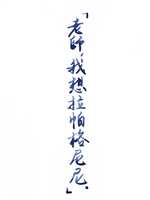 「老師，我想拉帕格尼尼。」